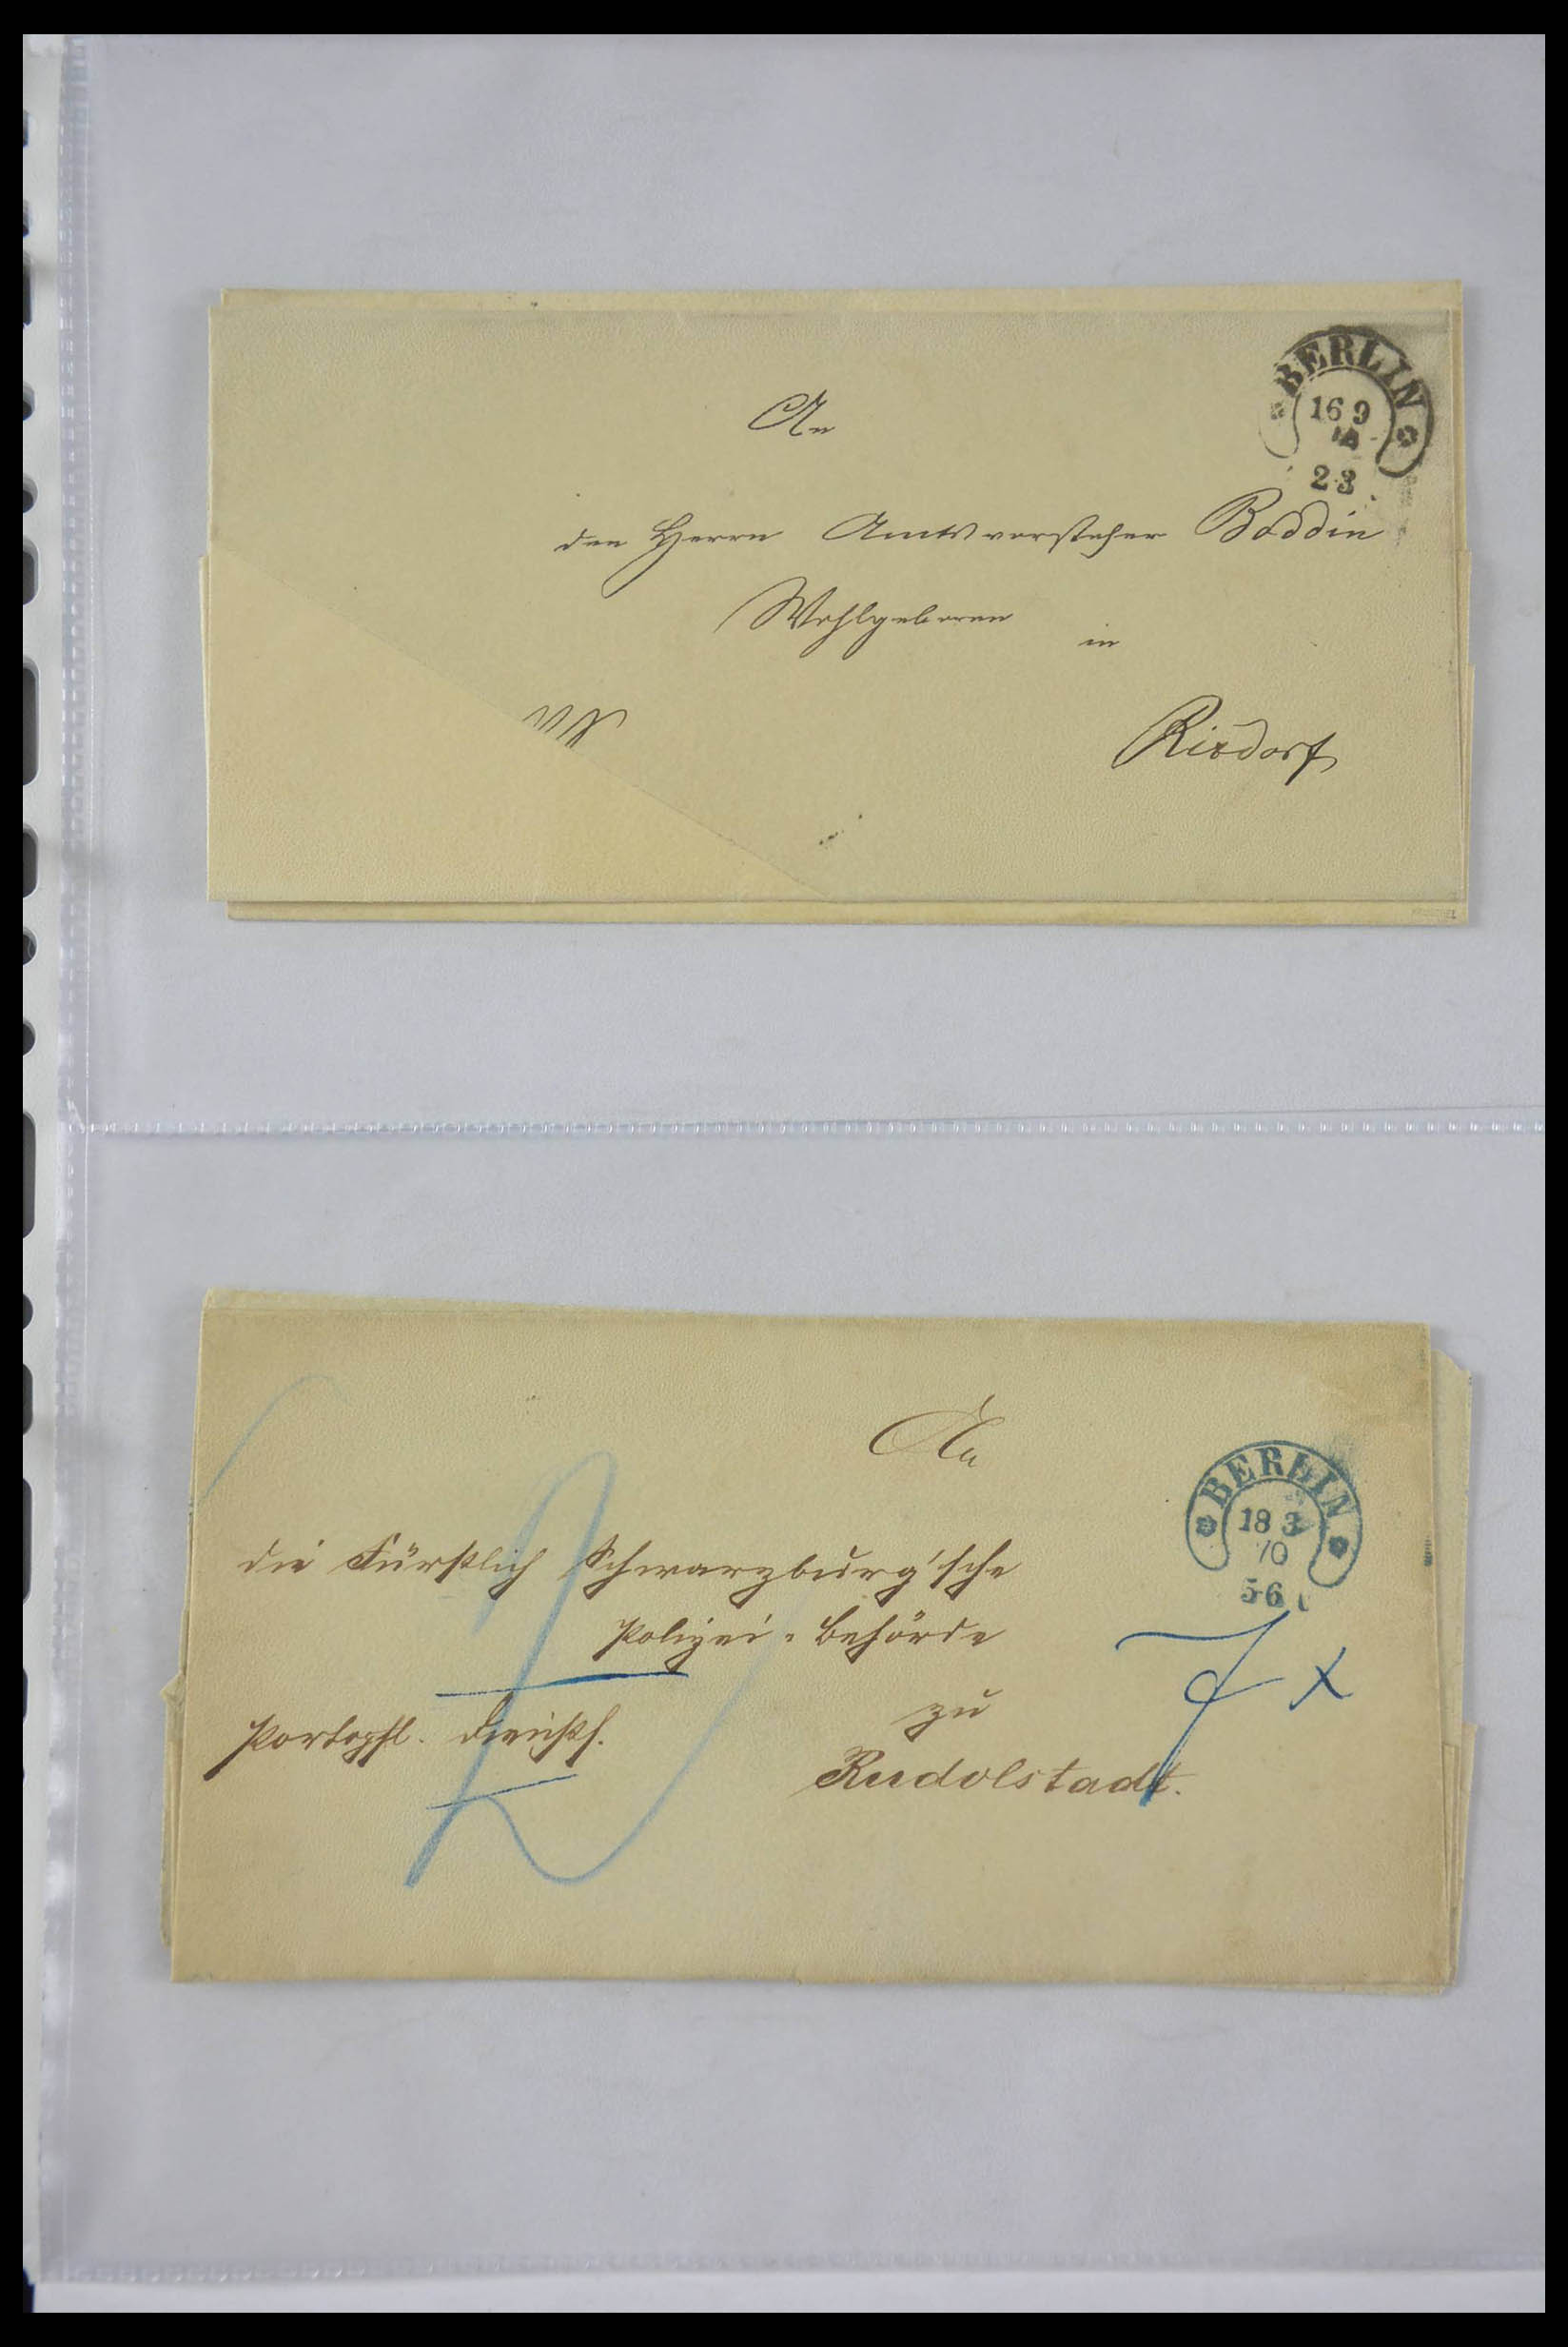 BERLIN
16 9
2-3
An
den Herrn Amtsvorsteher Boddin
Wohlgeboren
in
Rixdorf
BERLIN
18 3
70
5-6
An
die Fürstlich Schwarzburg'sche
Polizei-Behörde
zu
Portopfl. Dienists.
Rudolstadt.